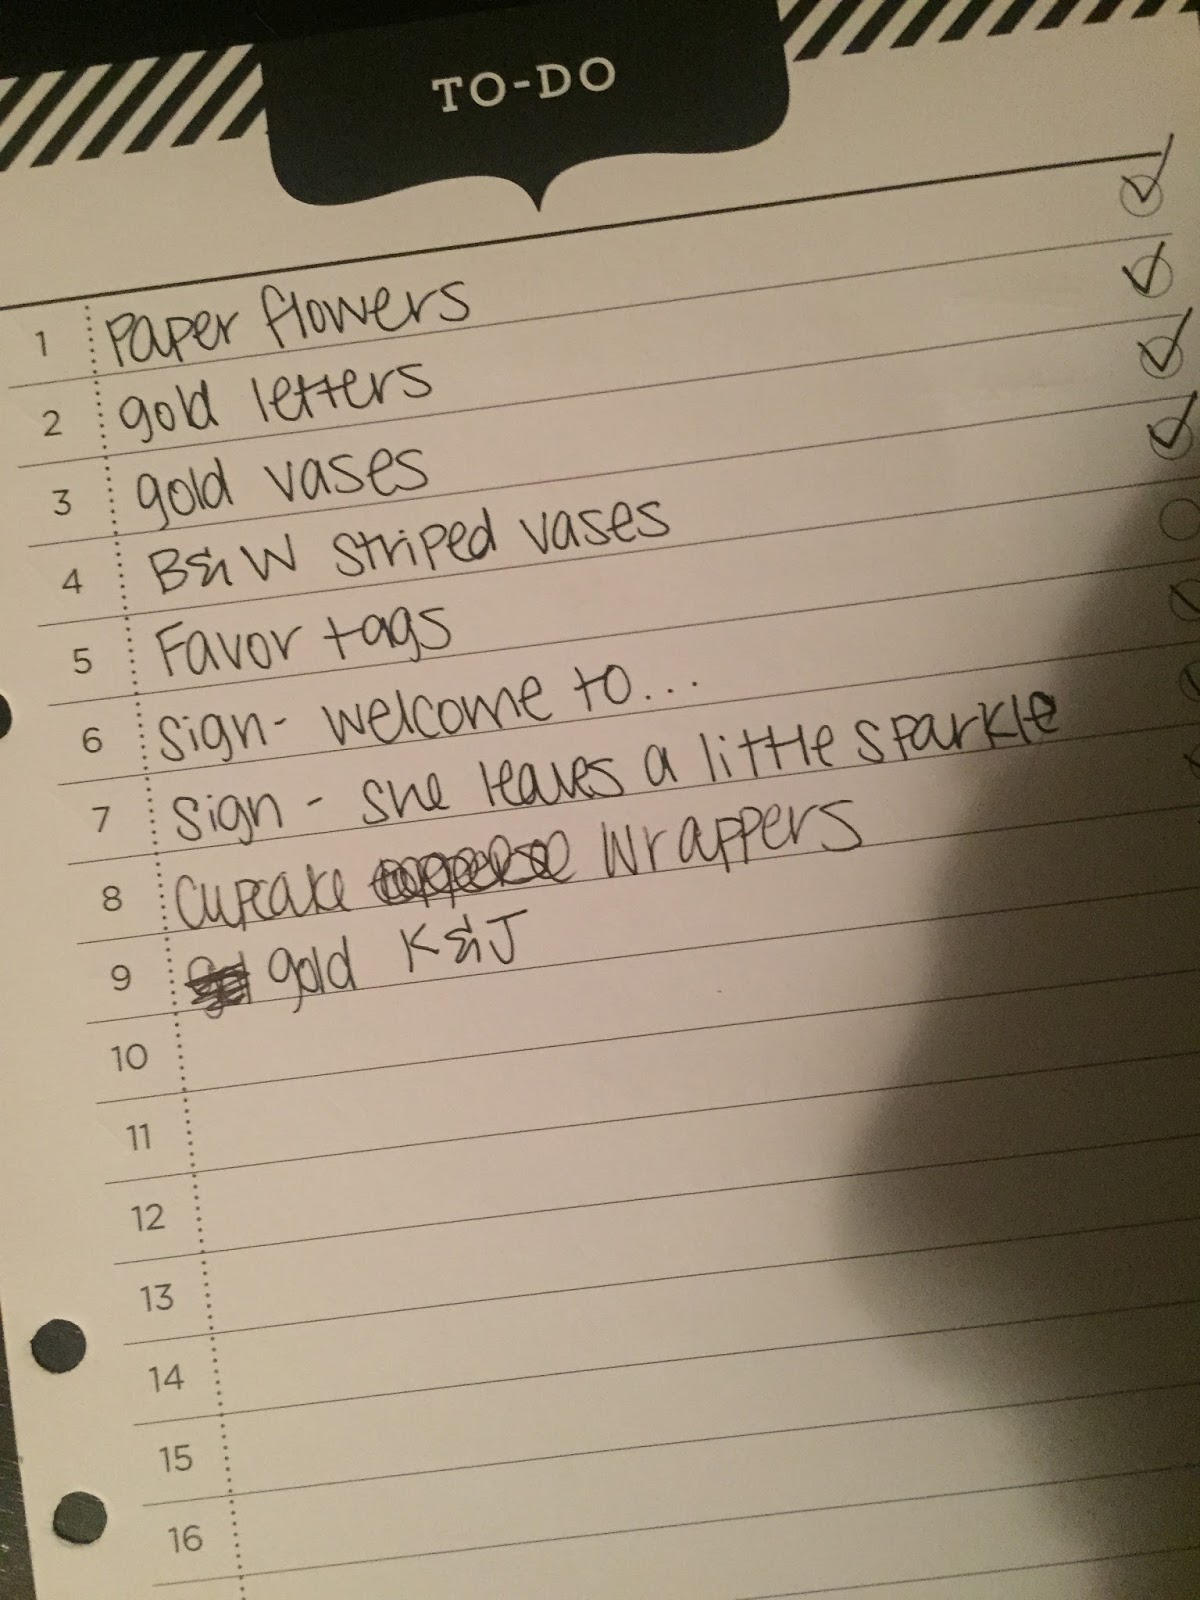 TO-DO
1 Paper flowers
2 gold letters
3 gold vases
4 B&W striped vases
5 Favor tags
6 Sign- welcome to...
7 Sign - she leaves a little sparkle
8 Cupcake wrappers
9 gold K&J
10
11
12
13
14
15
16